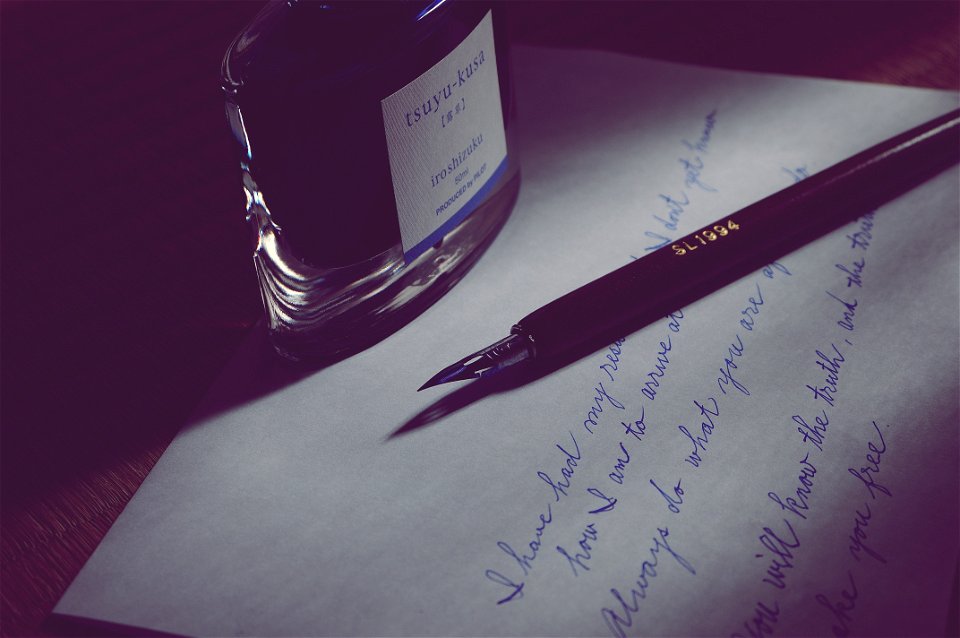 tsuyu-kusa
【露草】
iroshizuku
50ml
PRODUCED by PILOT
SL1994
I have had my I dont yet know
how I am to arrive at
Always do what you are
you will know the truth, and the
you free